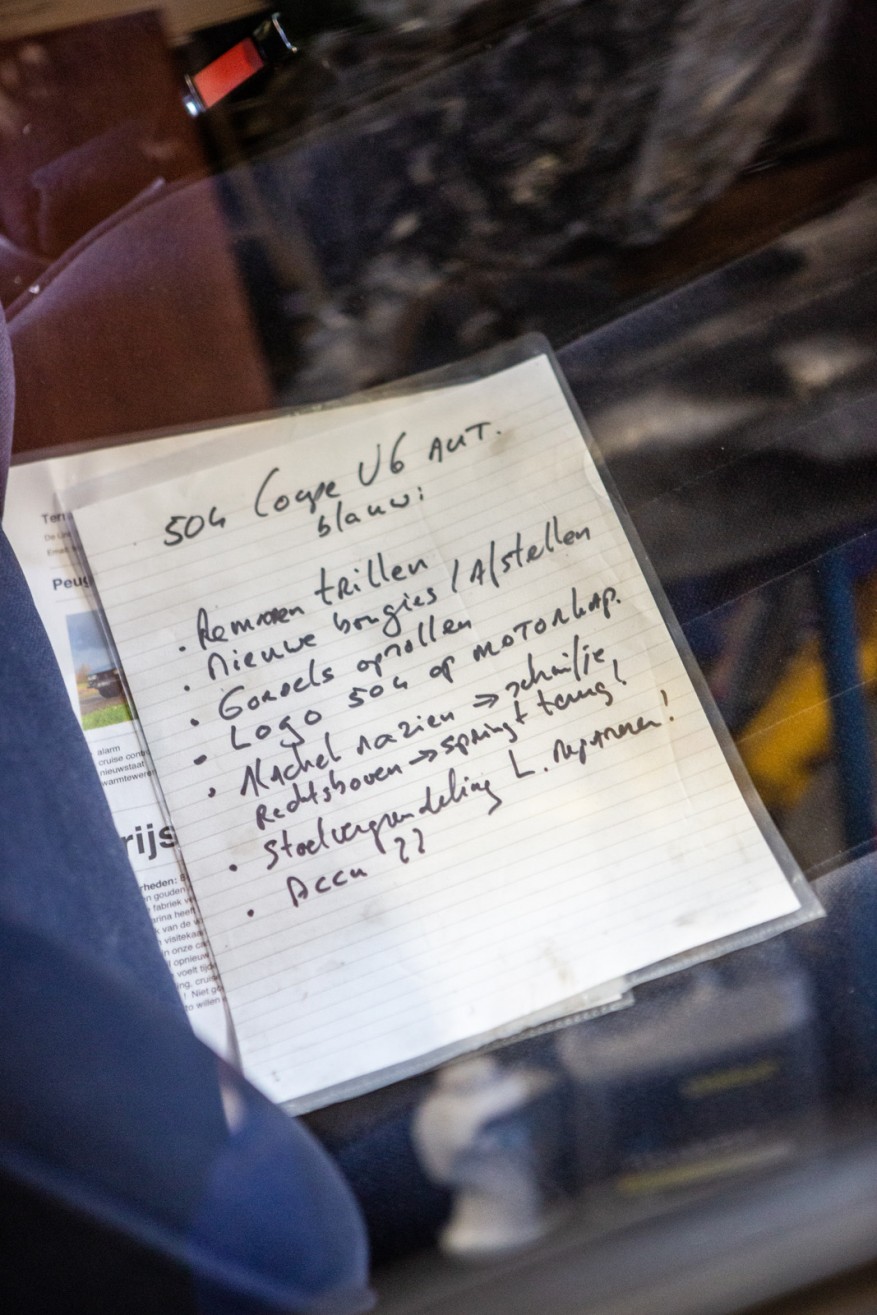 504 Coupe V6 AUT.
blauw:
• Remmen trillen
• Nieuwe bougies / Afstellen
• Gordels oprollen
• Logo 504 op MOTORKAP.
• Kachel nazien → schuifje
Rechtsboven → springt terug!
• Stoelvergrendeling L. repareren!
• Accu ??
Peug
alarm
cruise cont
nieuwstaat
warmteweren
rijs
rheden:
n gouden
fabriek v
arina heeft
k van de
visiteka
n onze ca
opnieuw
voelt tijd
ing, cruis
! Niet ge
to willen